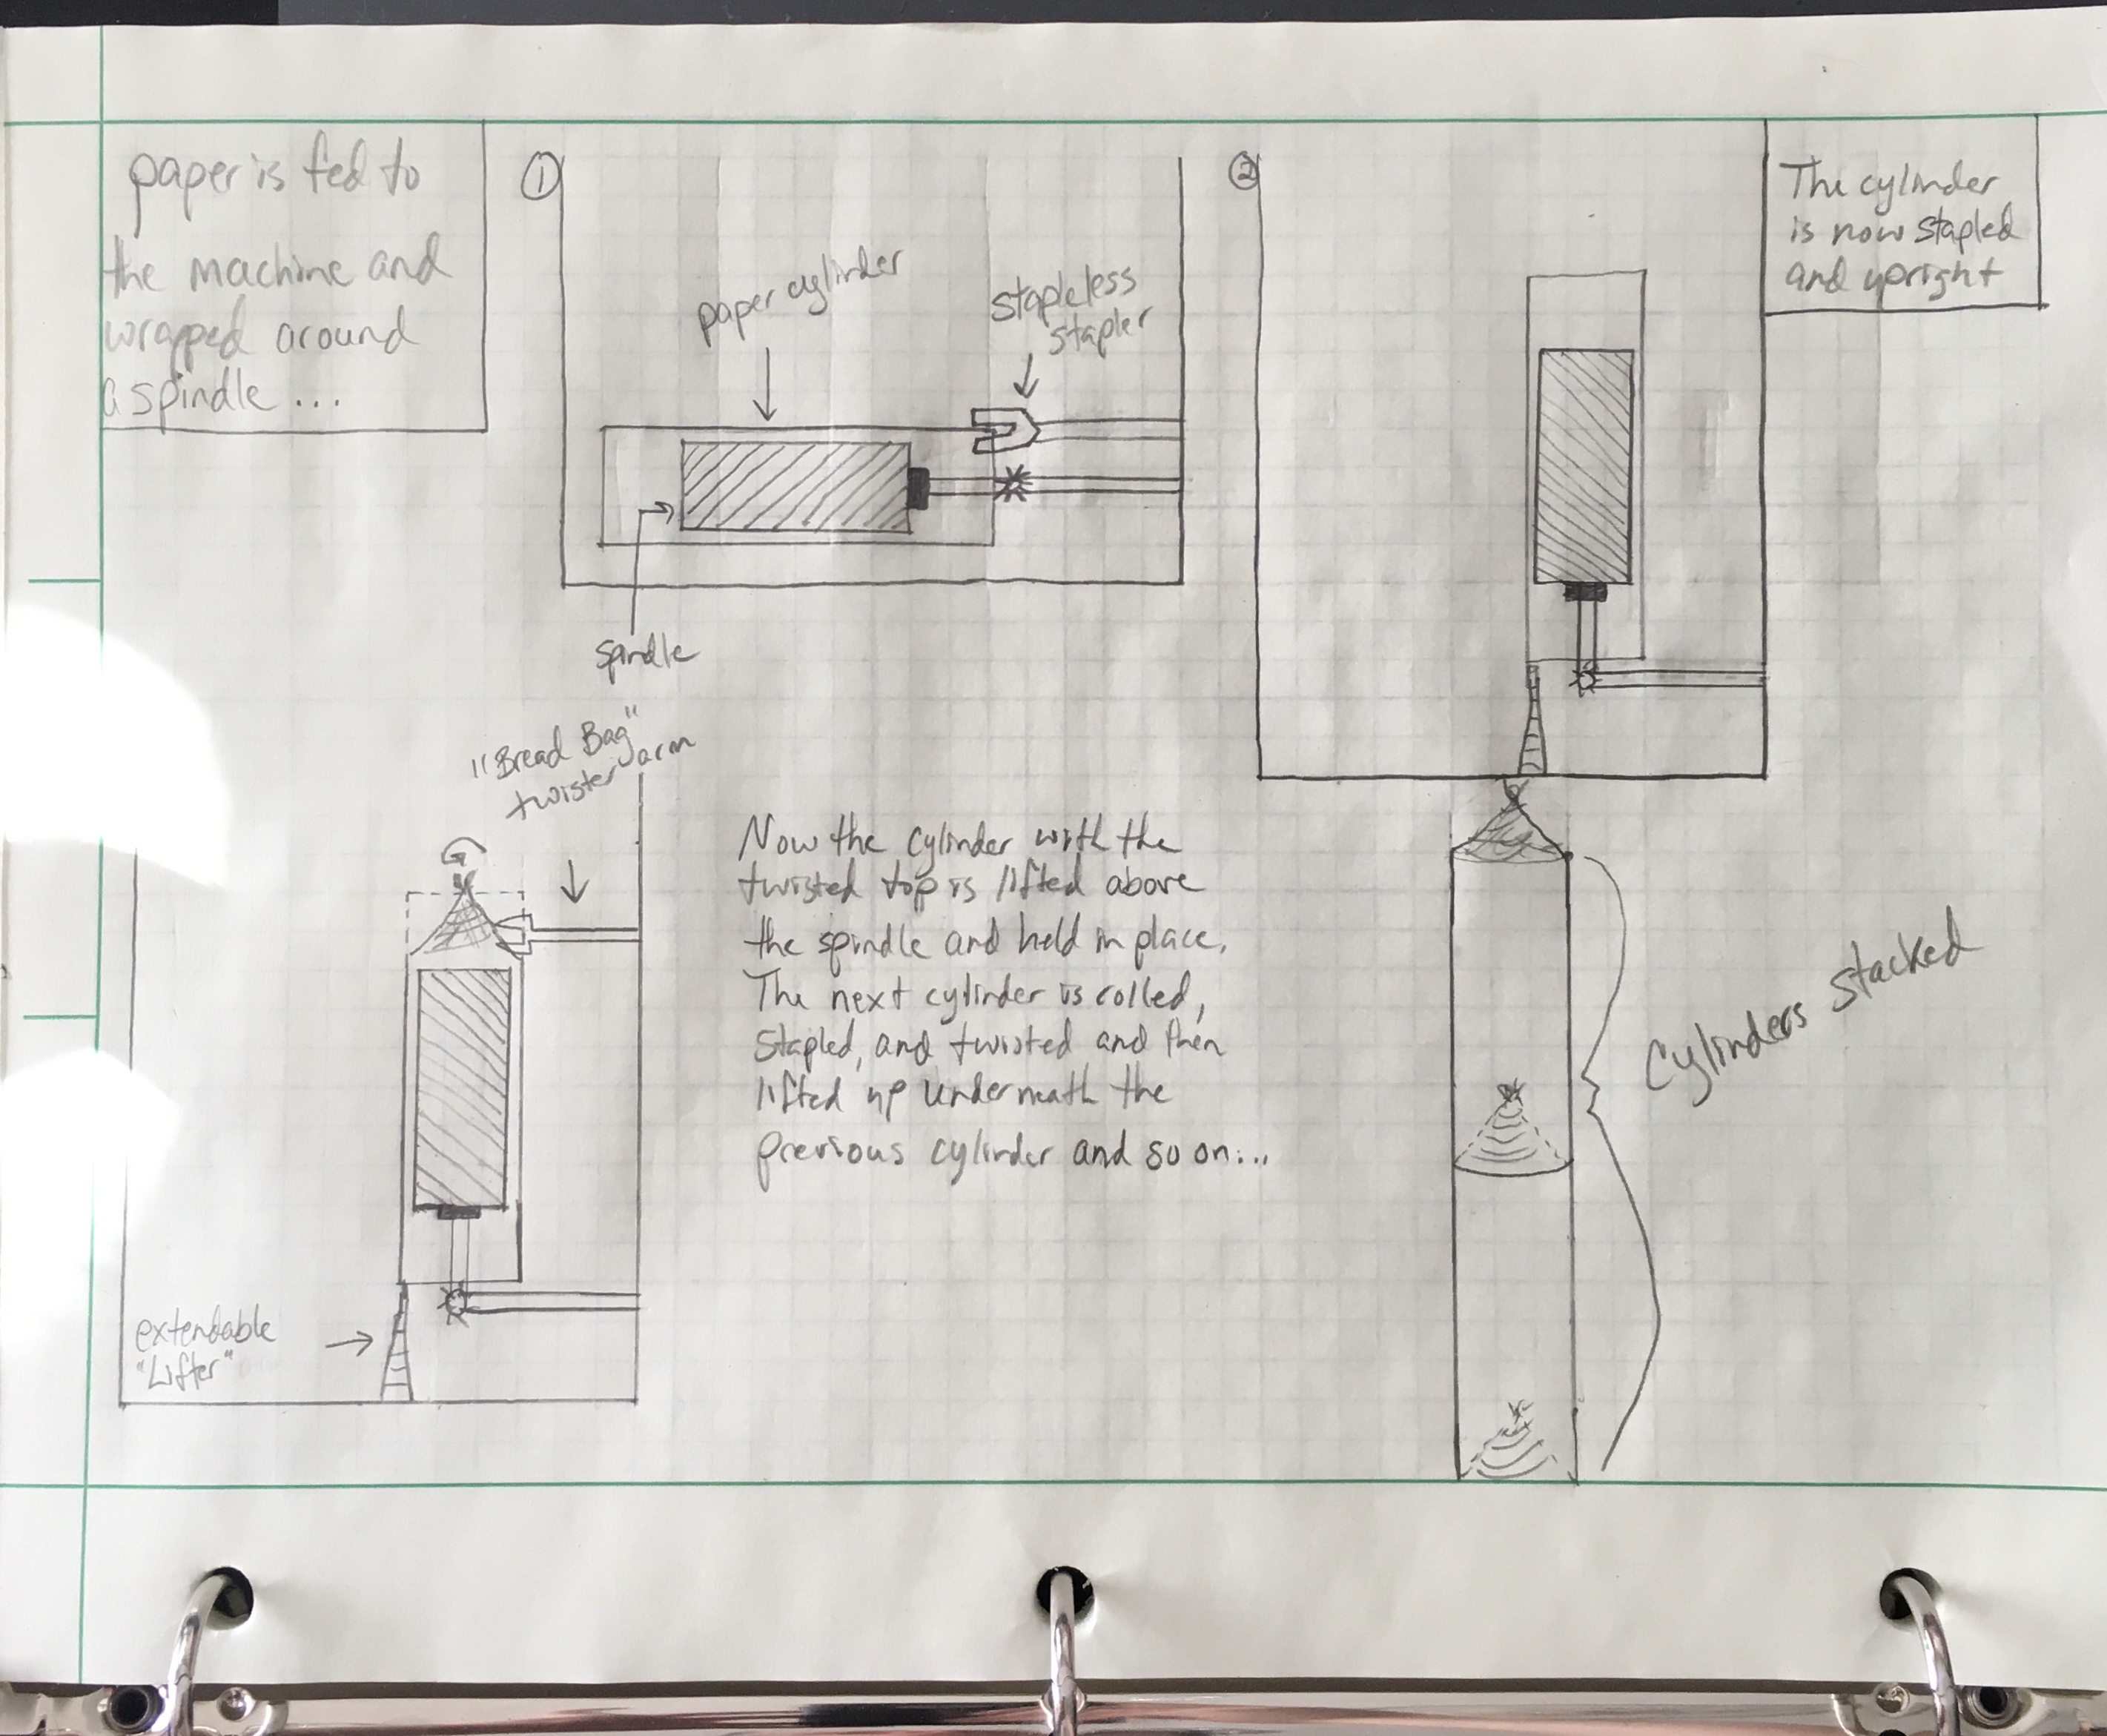 paper is fed to
the machine and
wrapped around
a spindle ...
①
paper cylinder
stapleless
stapler
spindle
②
The cylinder
is now stapled
and upright
"Bread Bag"
twister arm
extendable
"Lifter"
Now the cylinder with the
twisted top is lifted above
the spindle and held in place.
The next cylinder is rolled,
stapled, and twisted and then
lifted up underneath the
previous cylinder and so on...
Cylinders stacked